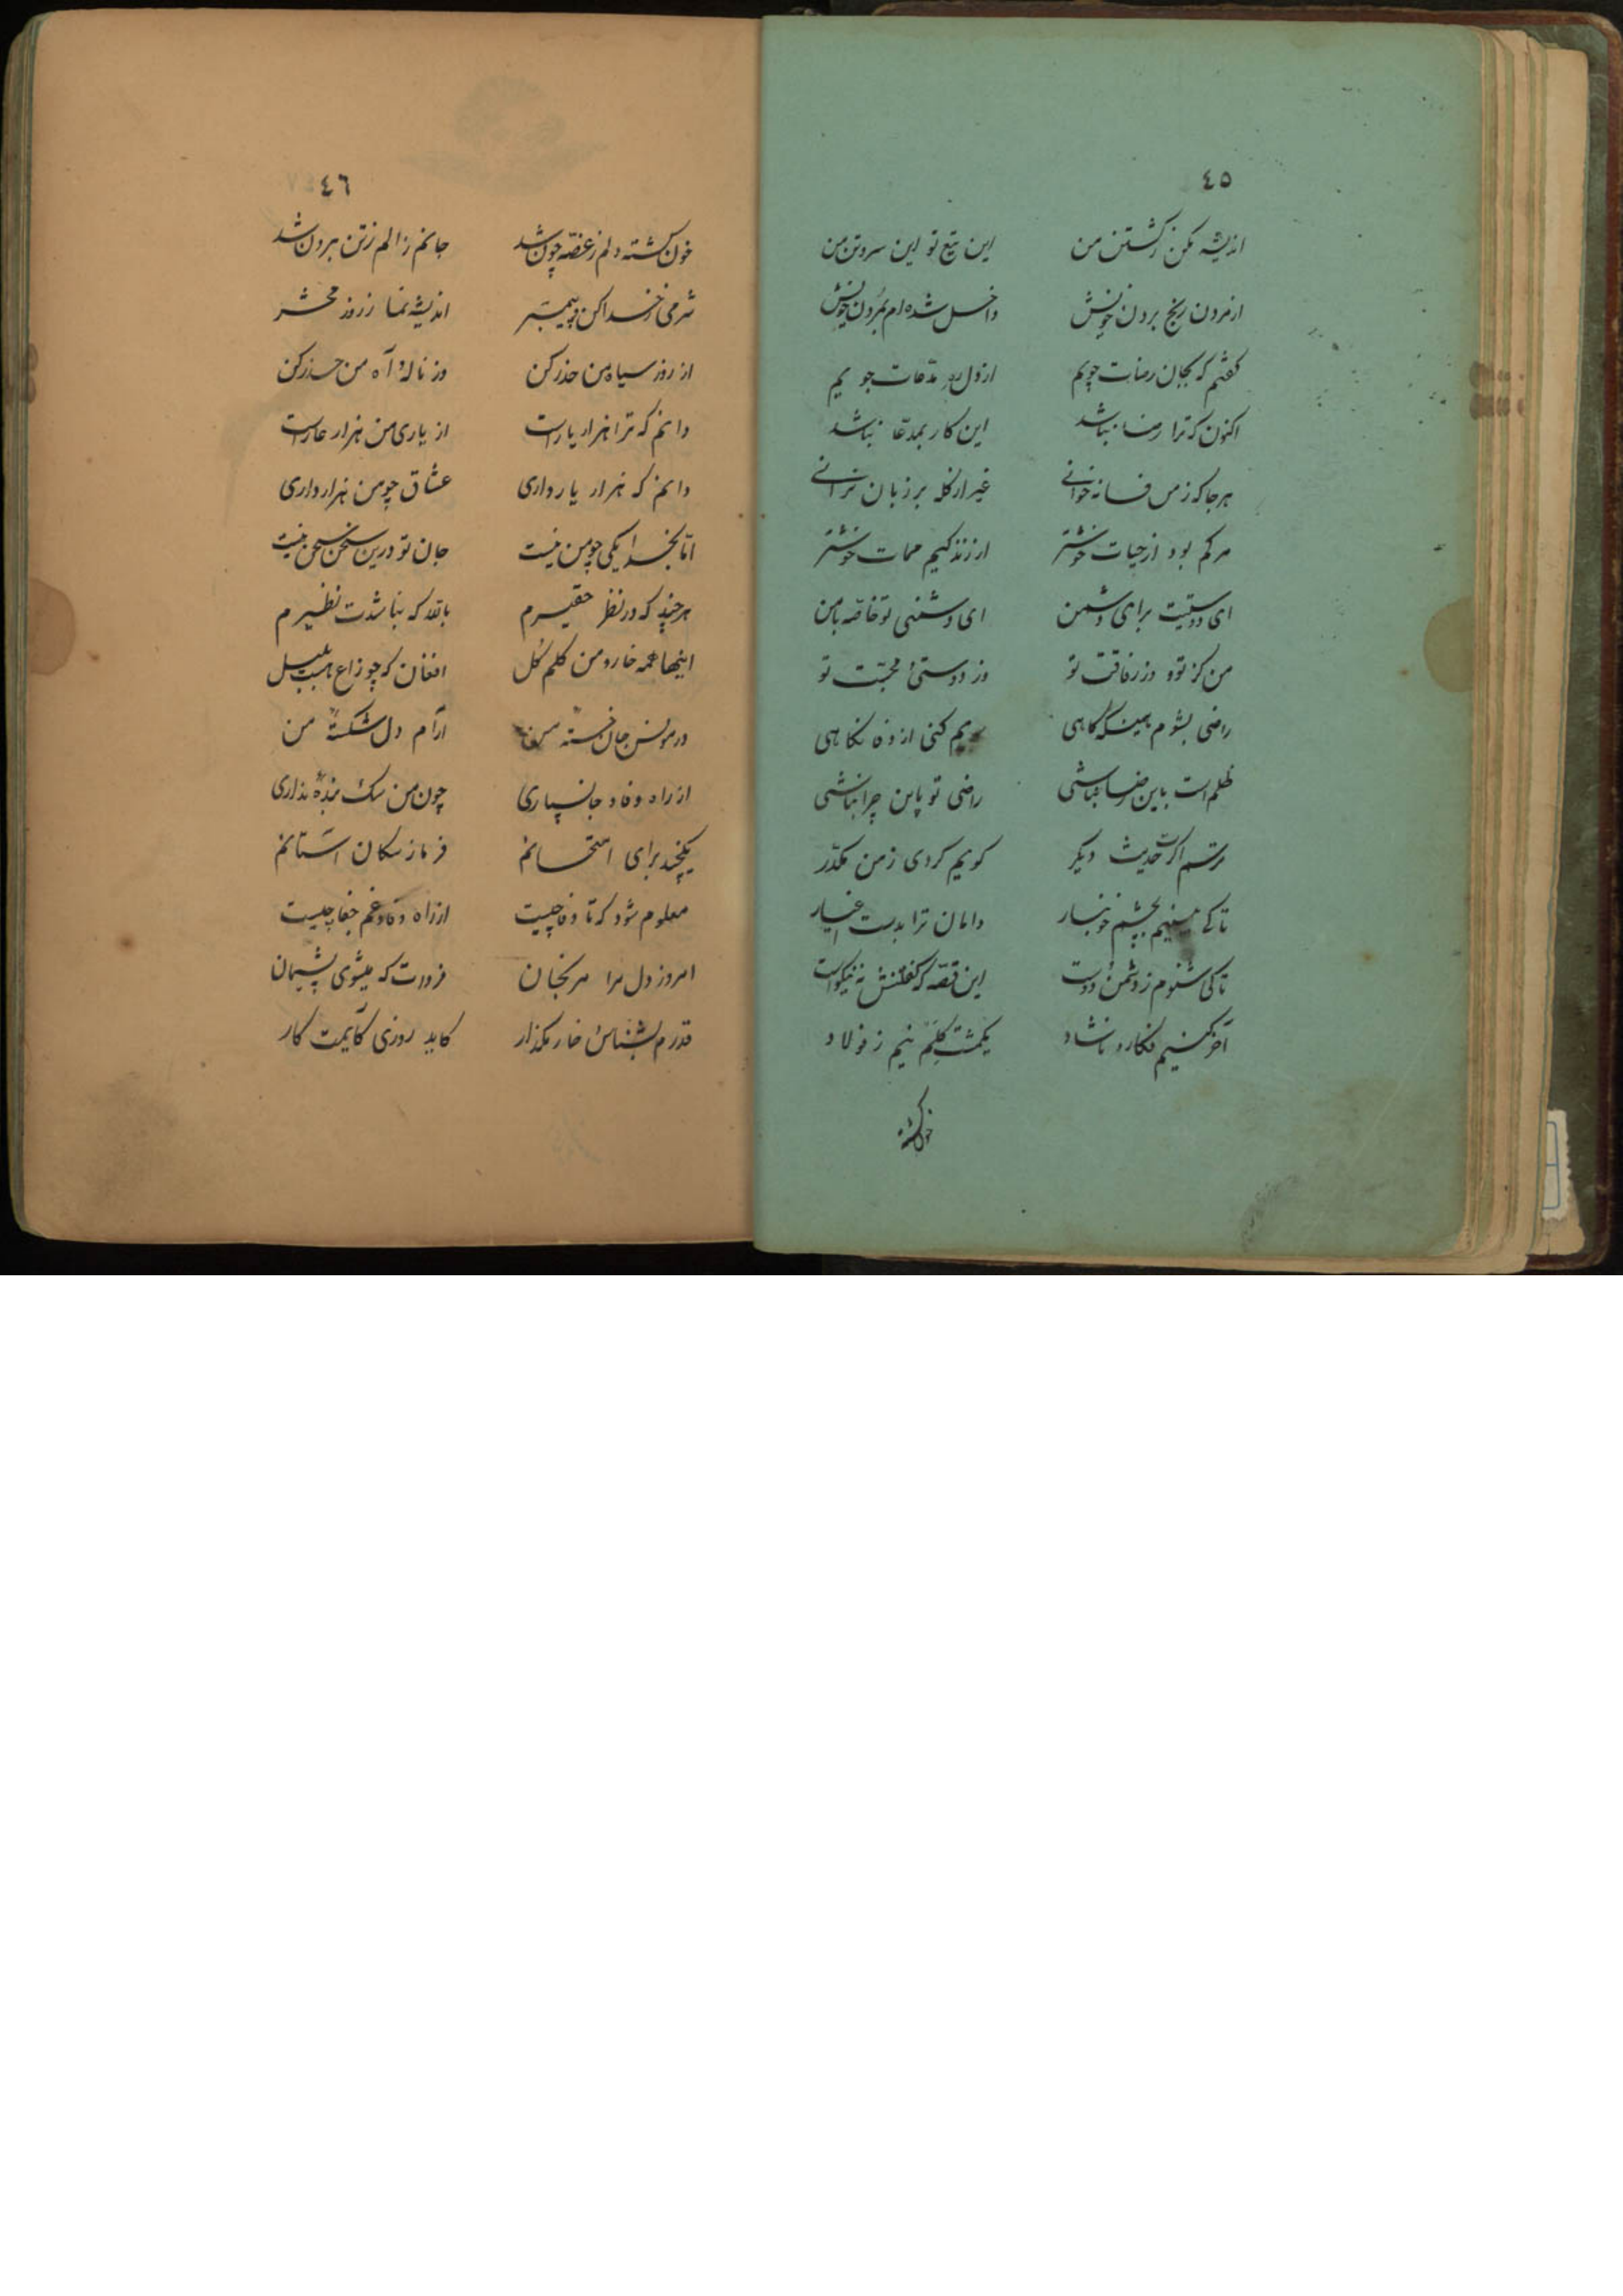 ٤٥
اندیشه مکن ز کشتن من این تیغ تو این سر و تن من
از مردن رنج بردن خویش داخل شده‌ام بمردن خویش
گفتم که بجان رضات جویم از دل ره مدّعات جویم
اکنون که ترا رضا نباشد این کار بمدعّا نباشد
هر جا که ز من فسانه خوانی غیر از گله بر زبان نرانی
مرگم بود از حیات خوشتر از زندگیم ممات خوشتر
ای دوستیت برای دشمن ای دشمنی تو خاصّه با من
من کز تو و وز رفاقت تو وز دوستیٔ محبّت تو
راضی بشوم بهمین که گاهی کنی از وفا نگاهی
ظلم است باین رضا نباشی راضی تو باین چرا نباشی
ترسم اگرت حدیث دیگر گویم گردی ز من مکدّر
تا کی بینیم بچشم خونبار دامان ترا بدست اغیار
تا کی شنوم ز دشمن و دوست این قصّه که گفتنش نه نیکوست
آخر نه کنیم فکار و ناشاد یکمشت گلم نیم ز فولاد
خون گشته
٤٦
خون گشته دلم ز غصّه چون شد جانم ز الم ز تن برون شد
شرمی ز خدا کن و پیمبر اندیشه نما ز روز محشر
از روز سیاه من حذر کن وز ناله و آه من حذر کن
دانم که ترا هزار یار است از یاری من هزار عار است
دانم که هزار یار داری عشاق چو من هزار داری
امّا بخدا یکی چو من نیست جان تو درین سخن سخن نیست
هر چند که در نظر حقیرم بالله که نباشدت نظیرم
اینها همه خار و من گلم گل افغان که چو زاغ هست بلبل
ور مونس جان خسته من آرام دل شکستهٔ من
از راه وفا و جانسپاری چون من سگ بندهٔ نداری
یکچند برای امتحانم فرما ز سگان آستانم
معلوم شود که تا وفا چیست از راه وفا و غم جفا چیست
امروز دل مرا مرنجان فردات که میشوی پشیمان
قدرم بشناس خار مگذار کاید روزی که آیمت کار